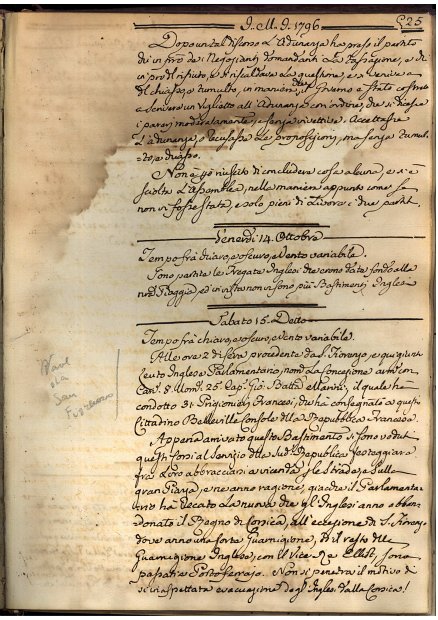 J. M. J. 1796 525
Dopo un tal discorso L'Adunanza ha preso il partito
di in pro de i Negozianti domandanti La Tassazione, e chi
in pro del rifiuto, e si riscaldava La questione, e si veniva a
del chiasso, e tumulto, in maniera, il Governo è stato costretto
a scrivere un viglietto all'Adunanza con ordine, che si dicesse
i pareri moderatamente, e senza invettive. Accettasse
L'adunanza, o recusasse le proposizioni, ma senza tumul-
to, e chiasso.
Non è riuscito di concludere cosa alcuna, e si è
sciolta L'Assemblea, nella maniera appunto come se
non vi fosse stata, e solo pieni di Livore i due partiti.
Venerdì 14. Ottobre
Tempo frà chiaro, e oscuro, e vento variabile.
Sono partite le Fregate Inglesi che erano date fondo alla
nra Piaggia, ed in vista non vi sono più Bastimenti Inglesi
Sabato 15. Detto
Tempo frà chiaro, e oscuro, e vento variabile.
Alle ore 2 di sera procedente da S. Fiorenzo, e qui giunto
Leuto Inglese Parlamentario, nomto La Concezione armto con
Can. 8 Uom. 25 Cap. Gio. Batta il quale ha
condotto 31 Prigionieri Francesi, che ha consegnato a questo
Cittadino Belleville Console della Repubblica Francese.
Appena arrivato questo Bastimento si sono veduti
questi Corsi al Servizio della Sudta Repubblica festeggiare
frà Loro abbracciarsi a vicenda p le strade, e p la
gran Piazza, e ne anno ragione, giacchè il Parlamenta-
rio hà recato La nuova che gl'Inglesi anno abban-
donato il Regno di Corsica, all'eccezione di S. Fiorenzo
dove anno una forte Guarnigione, e il resto della
Guarnigione Inglese, con il Vice Re Elliot, sono
passati a Porto ferrajo. Non si penetra il motivo di
si inaspettata evacuazione degl'Inglesi dalla Corsica!
San
Fiorenzo